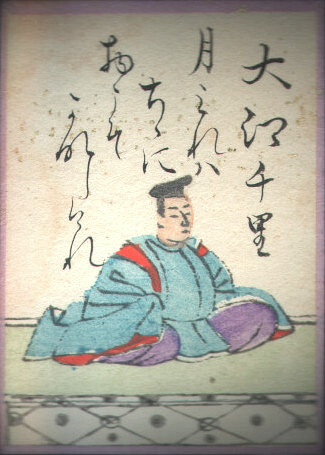 大江千里
月みれハ
ちゝに
物こそ
かなしけれ